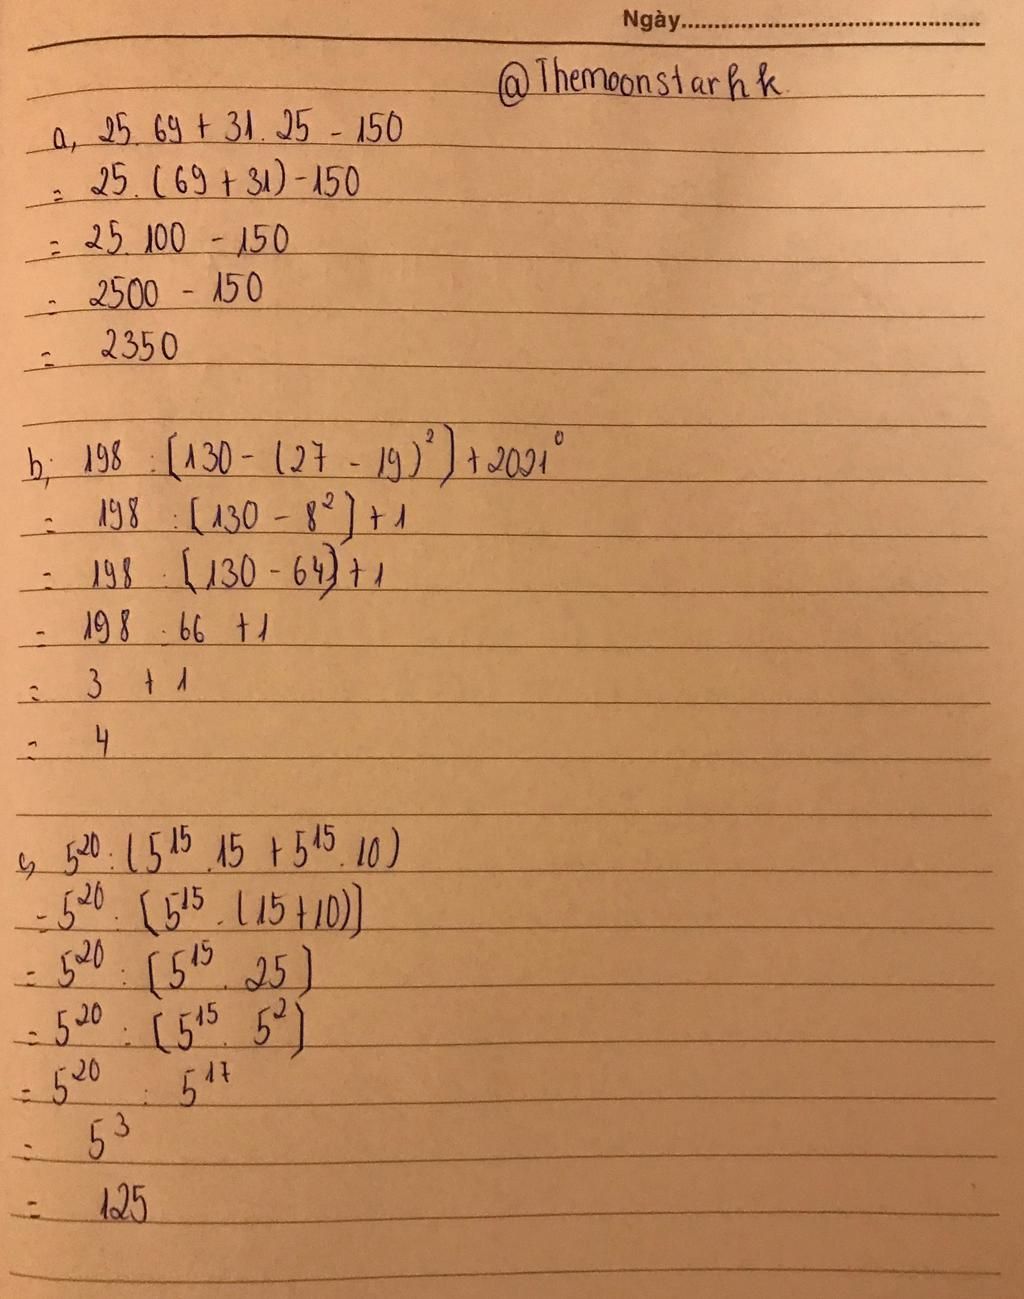 Ngày
@Themoonstarhk
a, 25.69 + 31.25 - 150
= 25.(69 + 31) - 150
= 25.100 - 150
= 2500 - 150
= 2350
b, 198 : [130 - (27 - 19)²] + 2021⁰
= 198 : [130 - 8²] + 1
= 198 : [130 - 64] + 1
= 198 : 66 + 1
= 3 + 1
= 4
c, 5²⁰ : (5¹⁵.15 + 5¹⁵.10)
= 5²⁰ : [5¹⁵.(15+10)]
= 5²⁰ : [5¹⁵.25]
= 5²⁰ : [5¹⁵.5²]
= 5²⁰ : 5¹⁷
= 5³
= 125